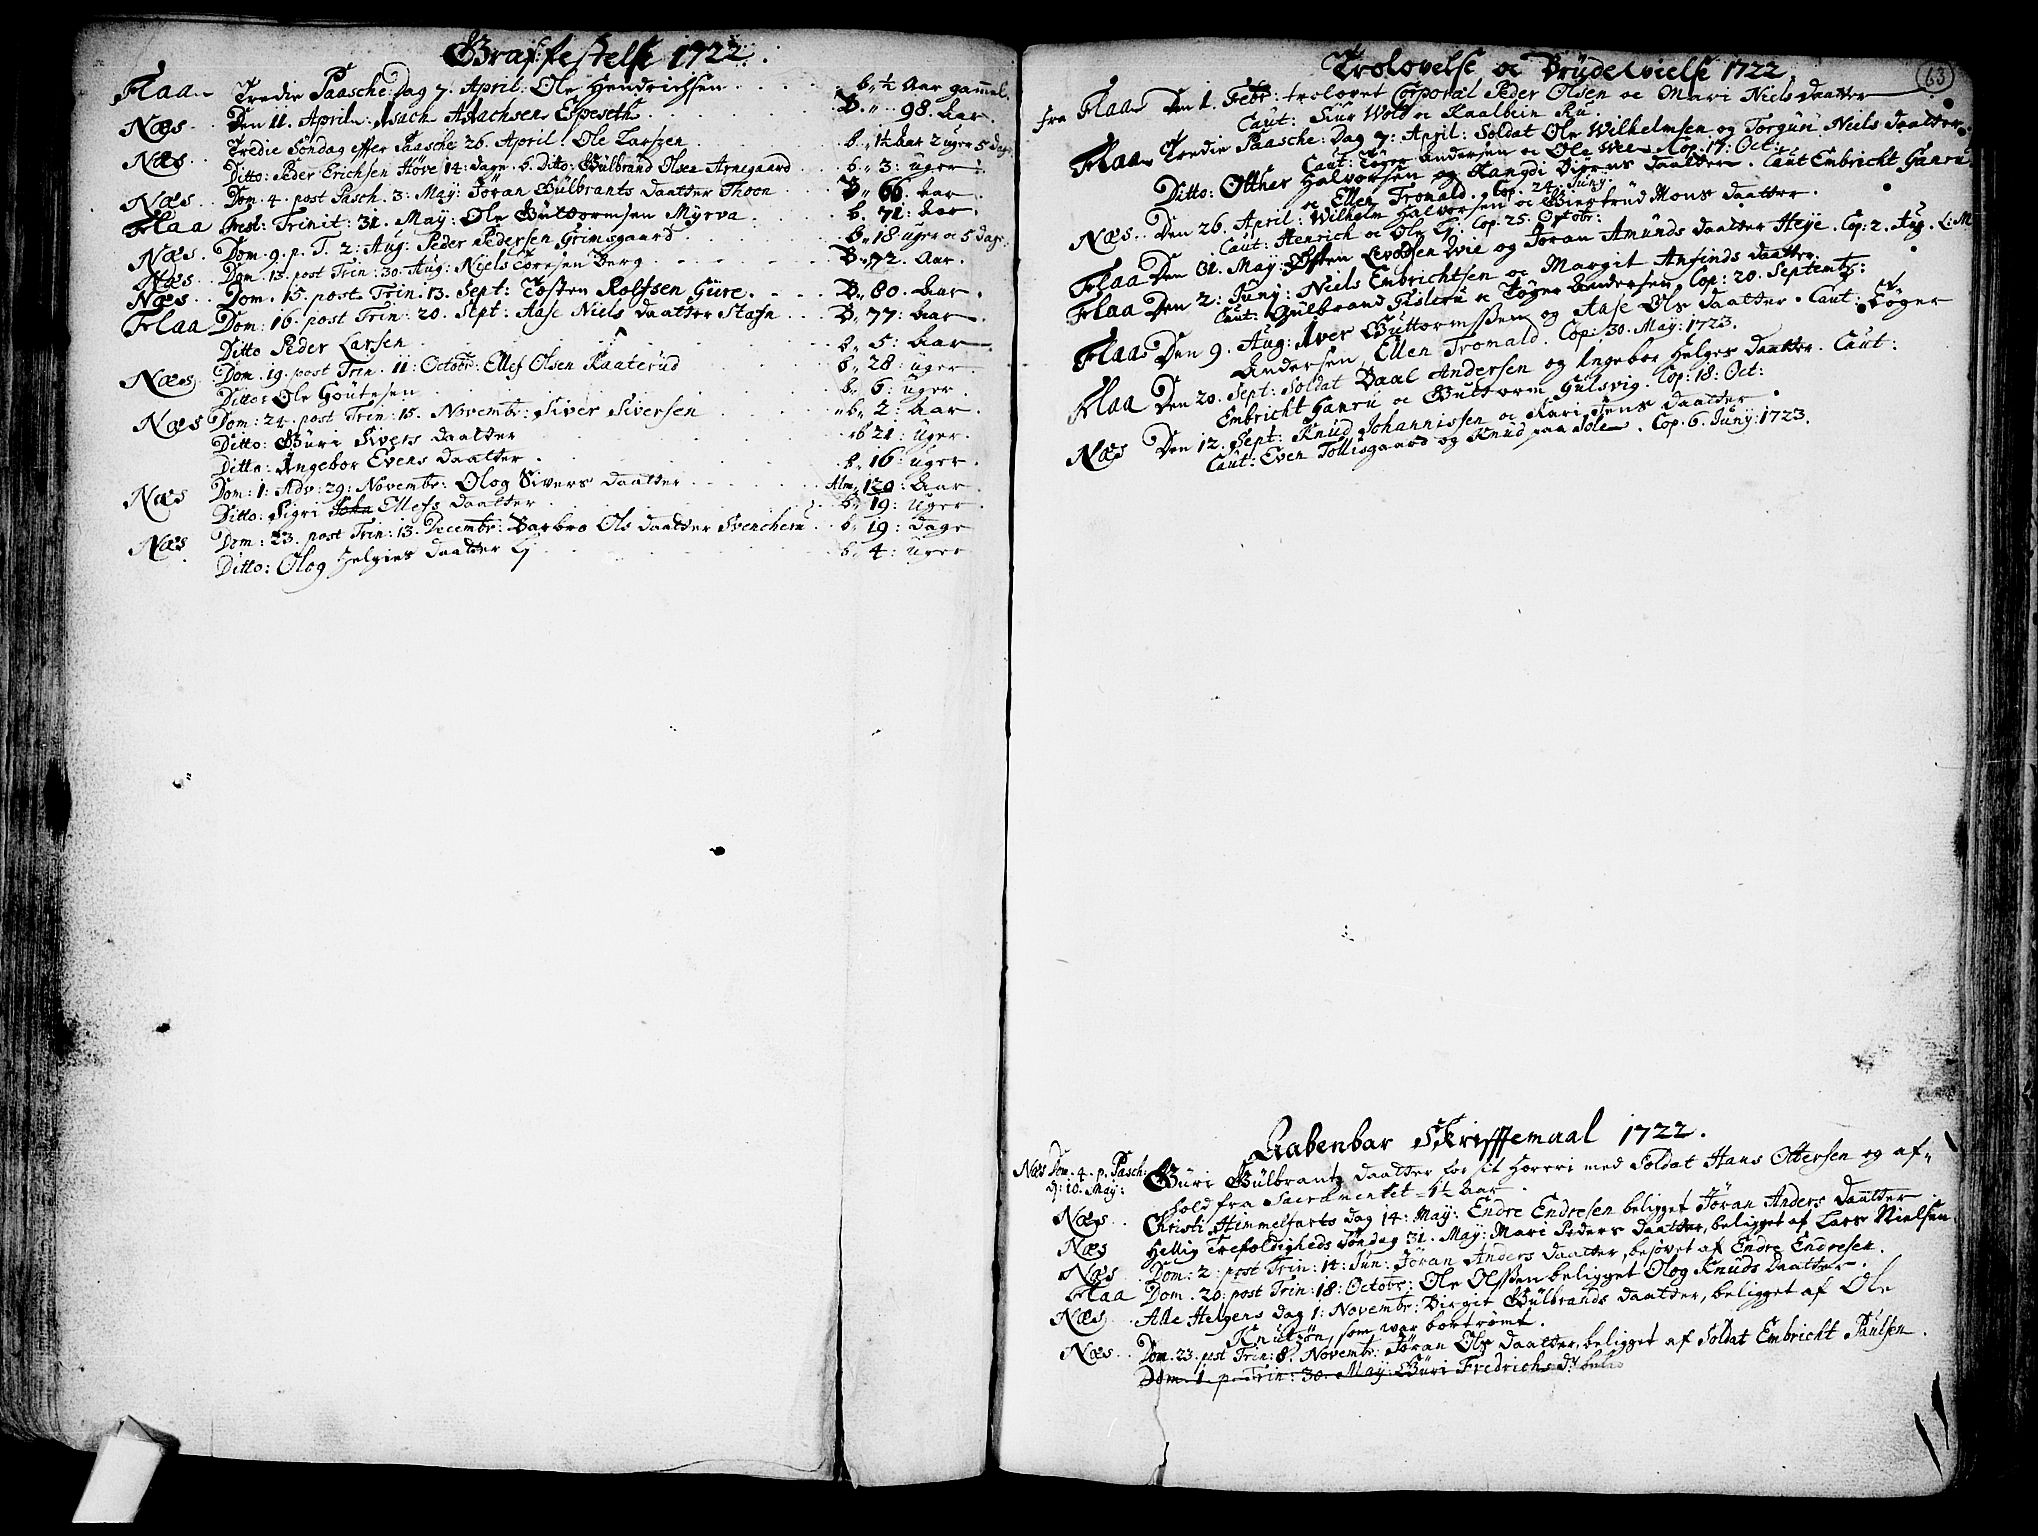 Graffestelse 1722.
Flaa - Tredie Paasche Dag 7. April: Ole Hendrichsen . . . . b. ½ Aar gammel.
Næs. Den 11. April: Isach Isachsen Espeseth . . . . B. 98. Aar.
Næs . Tredie Söndag effter Paasche 26. April: Ole Larsen . . b. 1½ Aar 2 uger 5 dage
Ditto: Peder Erichsen Höve 14: dage. b. Ditto: Gulbrand Olsen Arnegaard . . b. 3: uger
Næs . Dom. 4. post Pasch. 3. May: Jöran Gulbrants daatter Thoon . . B. 66. Aar.
Flaa Fest: Trinit: 31. May: Ole Guttormsen Myrva . . . b. 71: Aar.
Næs . Dom. 9. p. T. 2: Aug: Peder Pedersen Grimsgaard . . . b. 18 uger oc 5 dage.
Næs . Dom. 13. post Trin: 30. Aug: Niels Toresen Berg . . . . B. 72. Aar.
Næs . Dom. 15. post. Trin. 13. Sept: Tosten Rolfsen Gure. . . . B. 80. Aar.
Flaa Dom: 16. post Trin: 20. Sept: Aase Niels daatter Stafn . . . B. 77: Aar.
Ditto Peder Larsen . . . . b. 5: Aar.
Næs. Dom. 19. post Trin. 11: Octobr: Ellef Olsen Kaaterud . . . b. 28: uger.
Ditto: Ole Goutesen . . . . b. 6: uger.
Næs Dom: 24. post Trin: 15. Novembr: Siver Siversen . . . b. 2: Aar.
Ditto: Guri Sivers daatter . . . b. 21: Uger.
Ditto: Ingebor Evens daatter . . . . b. 16: uger.
Næs Dom: 1: Adv: 29: Novembr: Olog Sivers daatter . . . . Alm. 120: Aar.
Ditto: Sigri John Ellefs daatter . . . b. 19: uger.
Næs Dom: 23. post Trin: 13. Decembr: Barbro Ols daatter Svencherud . . b. 19: dage
Ditto: Olog Helgies daatter Lj . . . . b. 4: uger

63
Trolovelse oc Brudevielse 1722.
fra Flaa Den 1. Febr: trolovet Corporal Peder Olsen oc Mari Niels daatter
Caut: Siur Wold oc Kaalbein Ru.
Flaa Tredie Paasche: Dag 7: April: Soldat Ole Wilhelmsen og Torgun Niels daatter.
Caut: Töger Andersen oc Ole Wee. Cop. 17: Oct:
Ditto: Otther Halvorsen og Rangdi Biörns daatter. Caut Embricht Ganru
oc Ellen Tromald. Cop. 24. Junij.
Næs . Den 26. April: Wilhelm Halvorsen oc Giertrud Mons daatter.
Caut: Henrich oc Ole Lj. Cop. 25. Octobr:
Flaa Den 31. May: Östen Levordsen Wie og Jöran Amunds daatter Heje. Cop: 2. Aug. L: M
Flaa Den 2: Junij: Niels Embrichtsen oc Margit Anfinds daatter.
Caut: Gulbrand Gislerud oc Töger Andersen. Cop: 20. Septemb:
Flaa Den 9. Aug: Iver Guttormssen og Aase Ols daatter. Caut: Töger
Andersen, Ellen Tromald. Cop: 30. May: 1723.
Flaa Den 20. Sept: Soldat Paal Andersen og Ingebor Helges daatter. Caut:
Embricht Ganru oc Guttorm Gulsvig. Cop: 18: Oct:
Næs Den 12. Sept: Knud Johannissen oc Kari Jens daatter.
Caut: Even Tollisgaard og Knud paa Sole. Cop. 6. Junij: 1723.
Aabenbar Skrifftemaal 1722.
Næs Dom. 4. p. Pasch: Guri Gulbrants daatter for sit Horeri med Soldat Hans Ottersen og af-
d: 10. May: hold fra Sacramentet 1½ Aar.
Næs . Christi Himmelfarts dag 14: May: Endre Endresen beligget Jöran Anders daatter
Næs Hellig Trefoldigheds Söndag 31. May: Mari Peders daatter, beligget af Lars Nielsen
Næs . Dom: 2. post Trin: 14: Jun: Jöran Anders daatter, besövet af Endre Endresen.
Flaa Dom. 20: post Trin: 18: Octobr: Ole Olssen beligget Olog Knuds daatter.
Næs. Alle Helgens dag 1: Novembr: Birgit Gulbrands daatter, beligget af Ole
Knutzön, som war bortrömt.
Næs . Dom. 23. post Trin: 8. Novembr: Jöran Ols daatter, beligget af Soldat Embricht Paulsen.
Dom. 1. p. Trin: 30. May: Guri Fredrichs dr